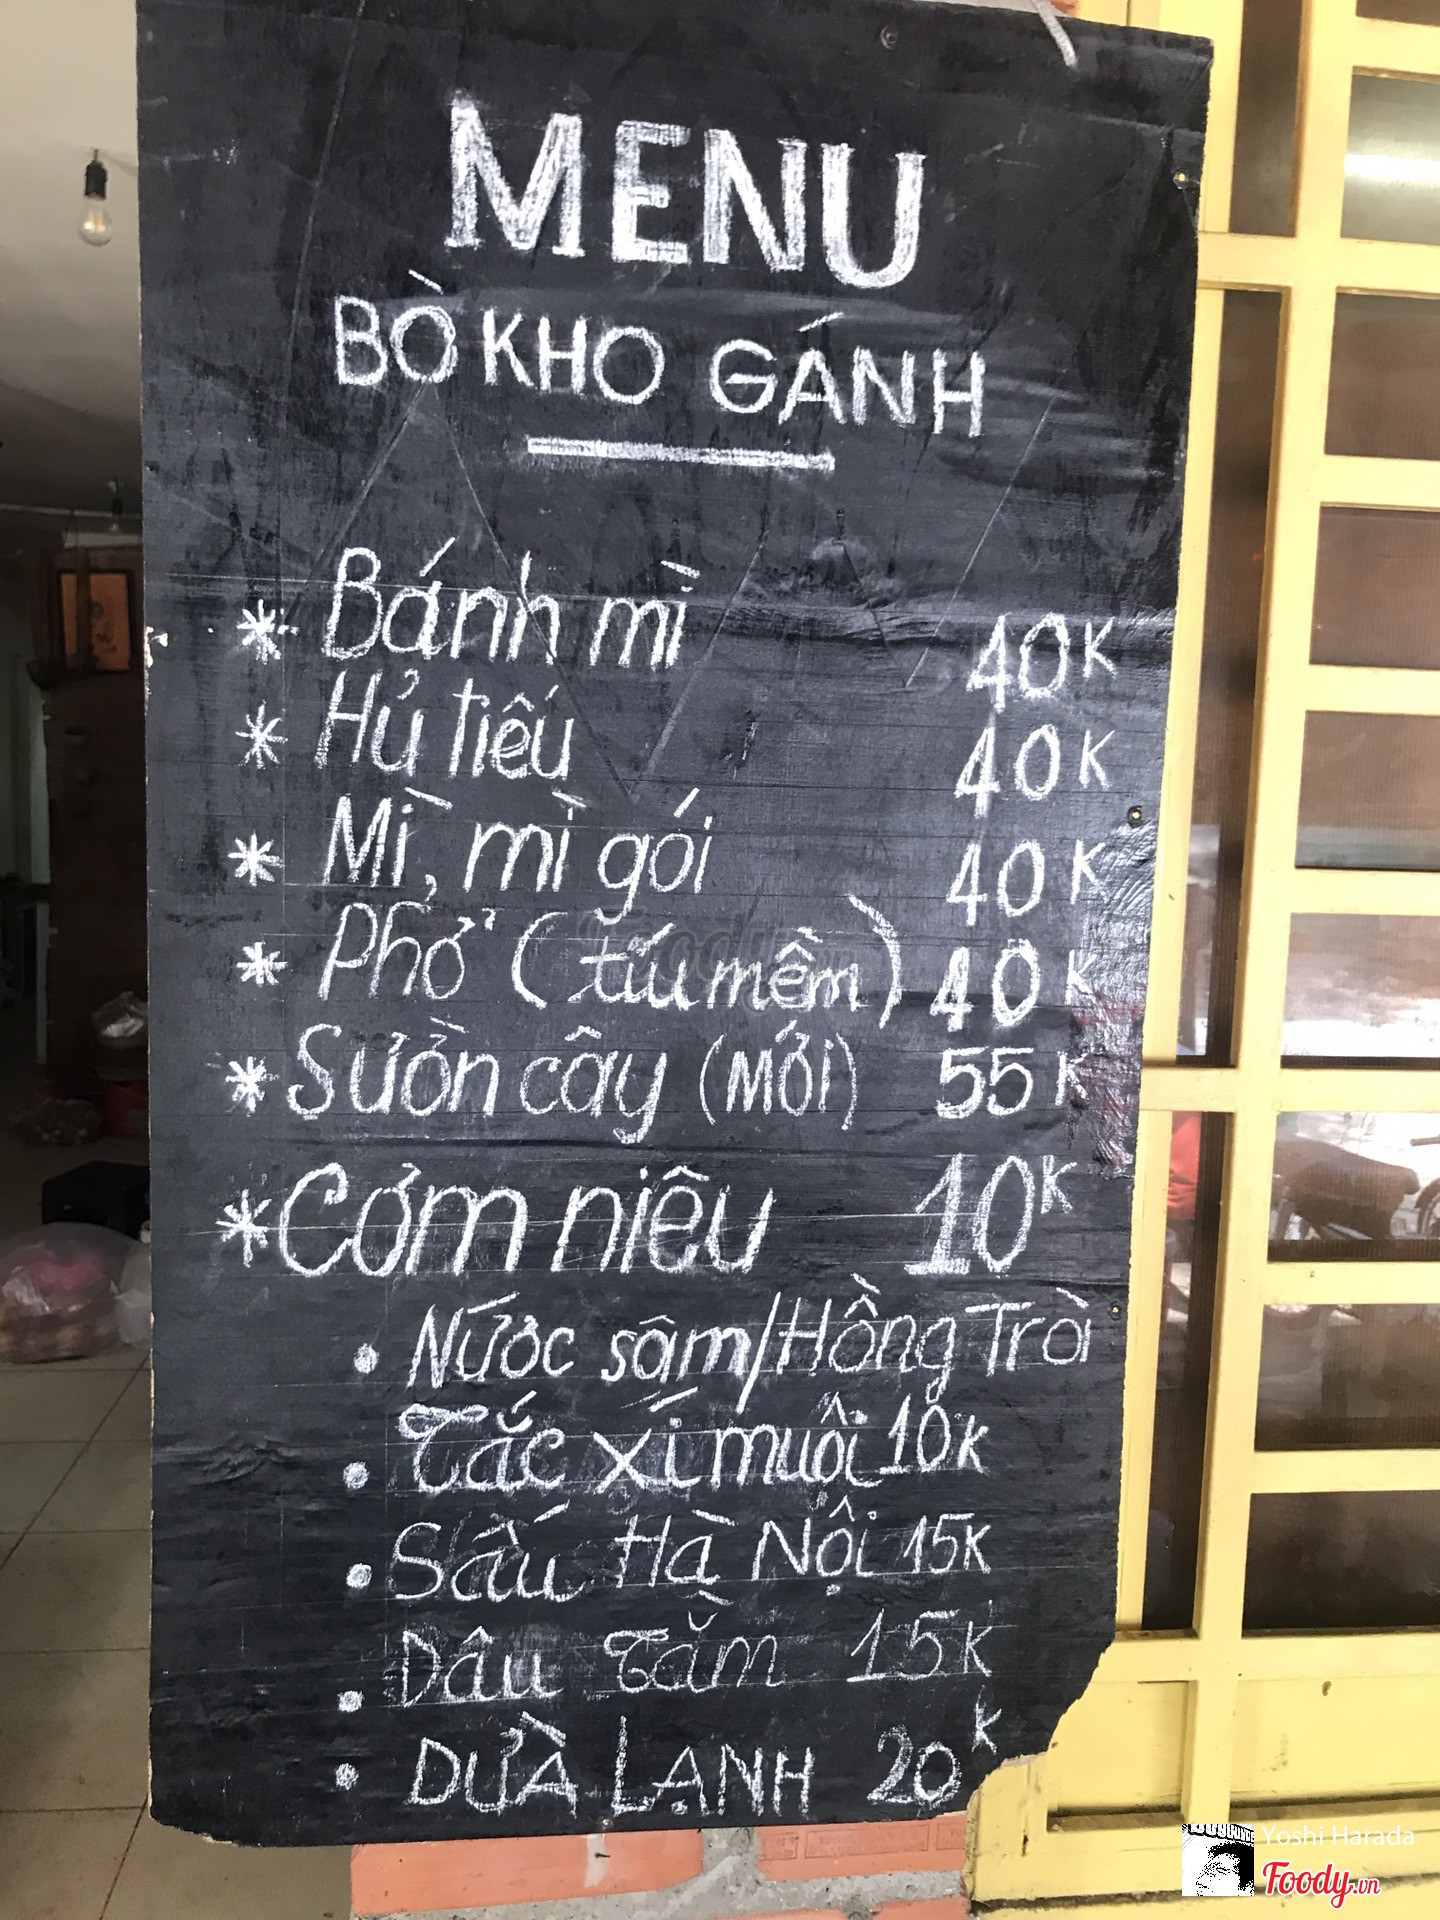 MENU
BÒ KHO GÁNH
* Bánh mì 40K
* Hủ tiếu 40K
* Mì, mì gói 40K
* Phở (tíu mềm) 40K
* Sườn cây (MỚI) 55K
* Cơm niêu 10K
• Nước sâm/Hồng Trời
• Tắc xí muội 10K
• Sấu Hà Nội 15K
• Dâu Tằm 15K
• DỪA LẠNH 20K
Yoshi Harada
Foody.vn